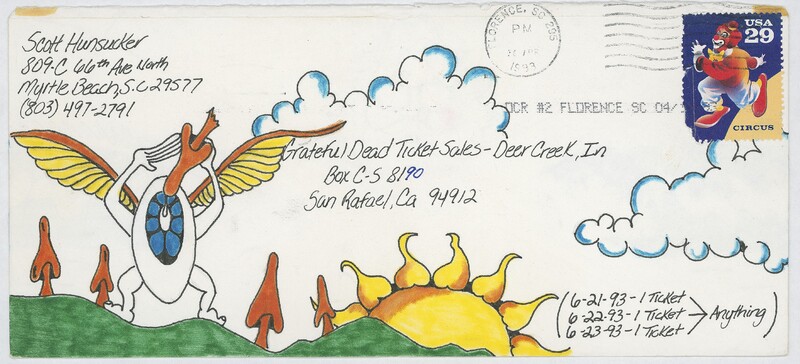 Scott Hunsucker
809-C 66th Ave North
Myrtle Beach, S.C 29577
(803) 497-2791
FLORENCE, SC 295
PM
1993
USA
29
CIRCUS
OCR #2 FLORENCE SC 04/
Grateful Dead Ticket Sales - Deer Creek, In
Box C-S 8190
San Rafael, Ca 94912
(6-21-93-1 Ticket
6-22-93-1 Ticket → Anything)
6-23-93-1 Ticket